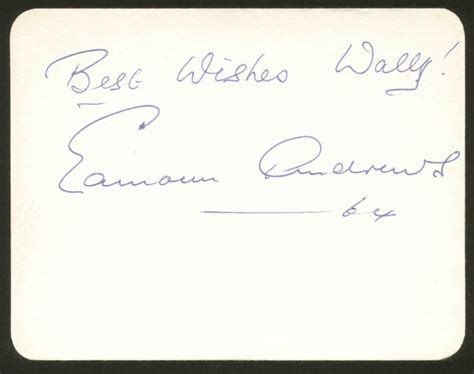 Best Wishes Wally!
Eamonn Andrews
64